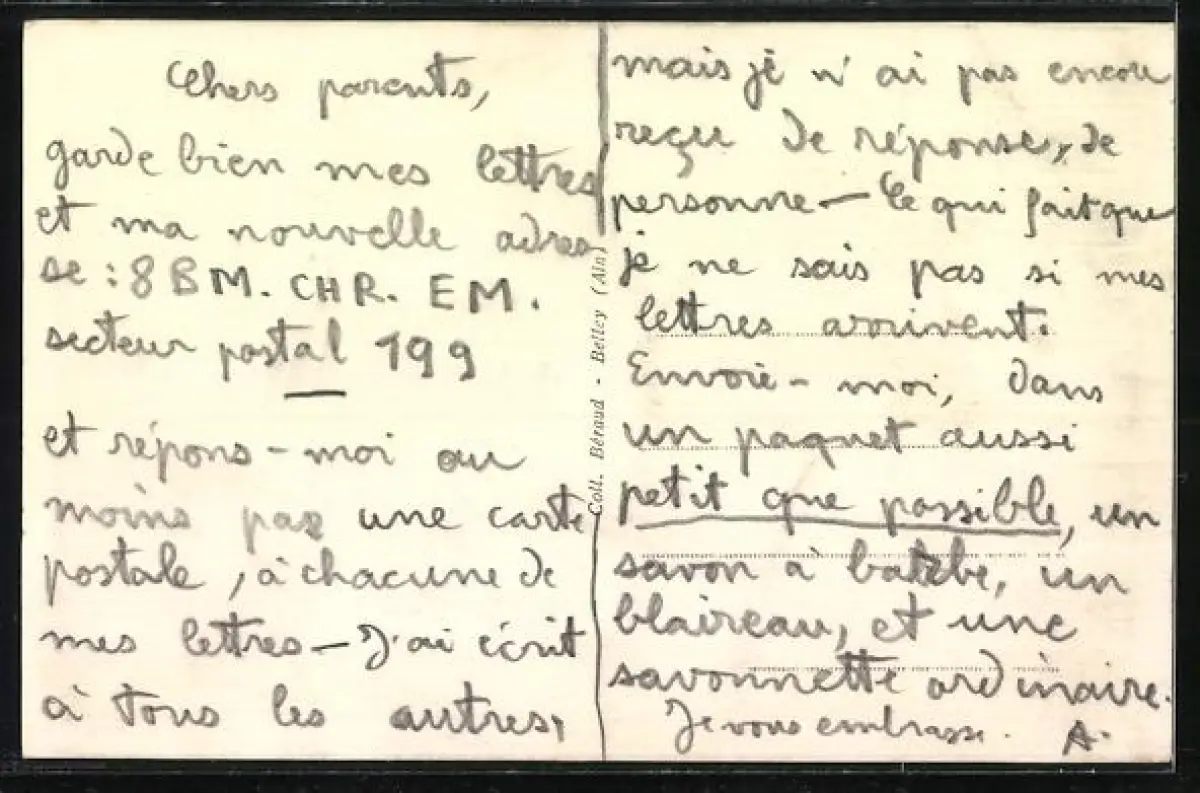 Chers parents,
garde bien mes lettres
et ma nouvelle adres
se : 8 B M. CHR. EM.
secteur postal 199
et répons-moi au
moins par une carte
postale, à chacune de
mes lettres — J'ai écrit
à tous les autres,
Coll. Béraud - Belley (Ain)
mais je n'ai pas encore
reçu de réponse, de
personne — Ce qui fait que
je ne sais pas si mes
lettres arrivent.
Envoie-moi, dans
un paquet aussi
petit que possible, un
savon à barbe, un
blaireau, et une
savonnette ordinaire.
Je vous embrasse. A.